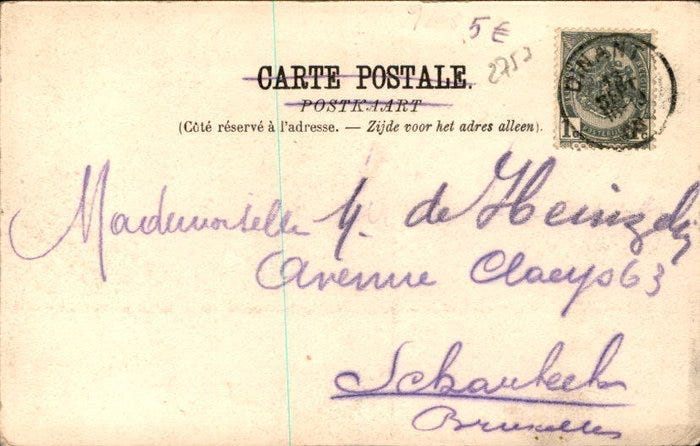 5 €
2752
CARTE POSTALE.
POSTKAART
(Côté réservé à l'adresse. — Zijde voor het adres alleen).
DINANT
1
Mademoiselle Y. de
Avenue Claeys 63
Schaerbeek
Bruxelles